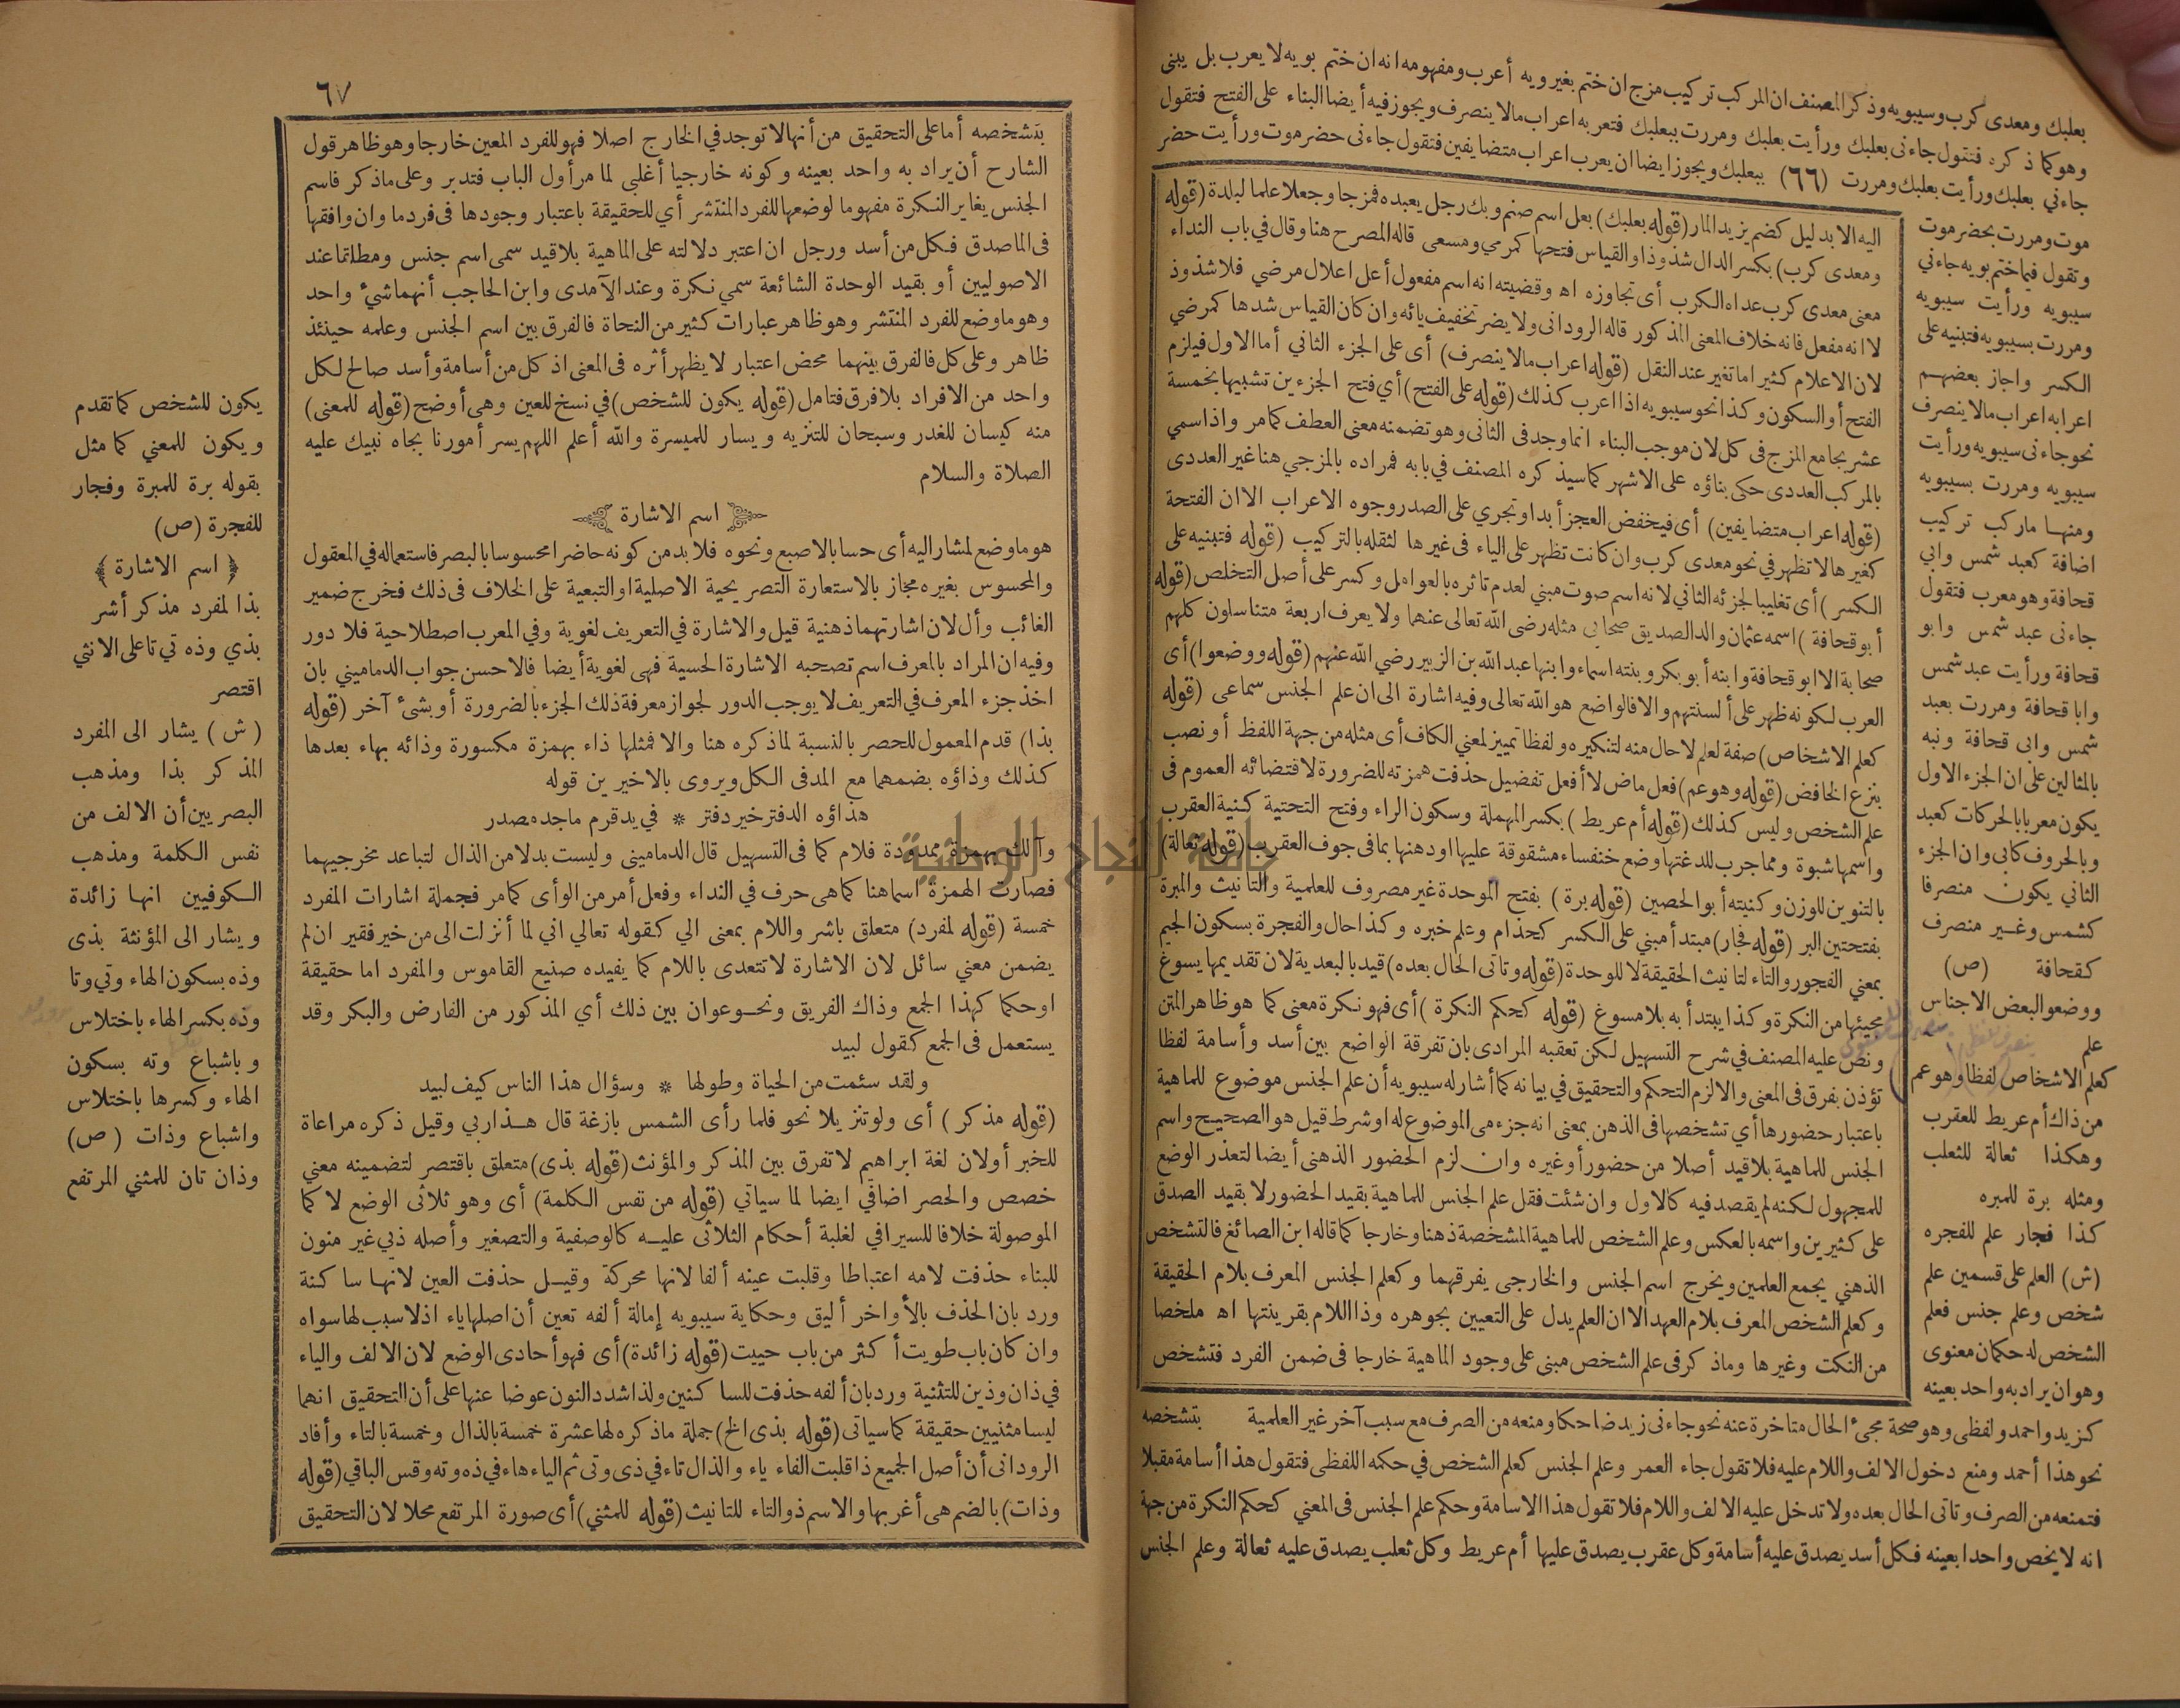 بعلبك ومعدى كرب وسيبويه وذكر المصنف ان المركب تركيب مزج ان ختم بغير ويه أعرب ومفهومه انه ان ختم بويه لا يعرب بل يبنى
وهو كما ذكره فتقول جاءنى بعلبك ورأيت بعلبك ومررت ببعلبك فتعربه اعراب مالا ينصرف ويجوز فيه أيضا البناء على الفتح فتقول
جاءني بعلبك ورأيت بعلبك ومررت (٦٦) ببعلبك ويجوز ايضا ان يعرب اعراب متضايفين فتقول جاءنى حضرموت ورأيت حضر
موت ومررت بحضرموت
وتقول فيما ختم بويه جاءني
سيبويه ورأيت سيبويه
ومررت بسيبويه فتبنيه على
الكسر واجاز بعضهم
اعرابه اعراب مالا ينصرف
نحو جاءنى سيبويه ورأيت
سيبويه ومررت بسيبويه
ومنها ما ركب تركيب
اضافة كعبد شمس وابي
قحافة وهو معرب فتقول
جاءنى عبد شمس وابو
قحافة ورأيت عبد شمس
وابا قحافة ومررت بعبد
شمس وابى قحافة ونبه
بالمثالين على ان الجزء الاول
يكون معربا بالحركات كعبد
وبالحروف كابى وان الجزء
الثاني يكون منصرفا
كشمس وغير منصرف
كقحافة (ص)
ووضعوا لبعض الاجناس
علم
كعلم الاشخاص لفظا وهو عم
من ذاك أم عريط للعقرب
وهكذا ثعالة للثعلب
ومثله برة للمبره
كذا فجار علم للفجره
(ش) العلم على قسمين علم
شخص وعلم جنس فعلم
الشخص له حكمان معنوى
وهو ان يراد به واحد بعينه
كزيد واحمد ولفظى وهو صحة مجئ الحال متاخرة عنه نحو جاءنى زيد ضاحكا ومنعه من الصرف مع سبب آخر غير العلمية
نحو هذا أحمد ومنع دخول الالف واللام عليه فلا تقول جاء العمر وعلم الجنس كعلم الشخص في حكمه اللفظى فتقول هذا أسامة مقبلا
فتمنعه من الصرف وتاتى الحال بعده ولا تدخل عليه الالف واللام فلا تقول هذا الاسامة وحكم علم الجنس فى المعني كحكم النكرة من جهة
انه لا يخص واحدا بعينه فكل أسد يصدق عليه أسامة وكل عقرب يصدق عليها أم عريط وكل ثعلب يصدق عليه ثعالة وعلم الجنس
اليه الا بدليل كضم يزيد المار (قوله بعلبك) بعل اسم صنم وبك رجل يعبده فمزجا وجعلا علما لبلدة (قوله
ومعدى كرب) بكسر الدال شذوذا والقياس فتحها كمرمي ومسعى قاله المصرح هنا وقال في باب النداء
معنى معدى كرب عداه الكرب أى تجاوزه اه وقضيته انه اسم مفعول أعل اعلال مرضي فلا شذوذ
لا انه مفعل فانه خلاف المعنى المذكور قاله الرودانى ولا يضر تخفيف يائه وان كان القياس شدها كمرضي
لان الاعلام كثيرا ما تغير عند النقل (قوله اعراب مالا ينصرف) أى على الجزء الثاني أما الاول فيلزم
الفتح أو السكون وكذا نحو سيبويه اذا اعرب كذلك (قوله على الفتح) أي فتح الجزءين تشبيها بخمسة
عشر بجامع المزج فى كل لان موجب البناء انما وجد فى الثانى وهو تضمنه معنى العطف كما مر واذا سمي
بالمركب العددى حكى بناؤه على الاشهر كما سيذكره المصنف في بابه فمراده بالمزجي هنا غير العددى
(قوله اعراب متضايفين) أى فيخفض العجز أبدا وتجري على الصدر وجوه الاعراب الا ان الفتحة
كغيرها لا تظهر في نحو معدى كرب وان كانت تظهر على الياء فى غيرها لثقله بالتركيب (قوله فتبنيه على
الكسر) أى تغليبا لجزئه الثاني لانه اسم صوت مبني لعدم تاثره بالعوامل وكسر على أصل التخلص (قوله
أبو قحافة) اسمه عثمان والد الصديق صحابى مثله رضى الله تعالى عنهما ولا يعرف اربعة متناسلون كلهم
صحابة الا ابو قحافة وابنه أبو بكر وبنته اسماء وابنها عبد الله بن الزبير رضي الله عنهم (قوله ووضعوا) أى
العرب لكونه ظهر على ألسنتهم والا فالواضع هو الله تعالى وفيه اشارة الى ان علم الجنس سماعى (قوله
كعلم الاشخاص) صفة لعلم لا حال منه لتنكيره ولفظا تمييز لمعني الكاف أى مثله من جهة اللفظ أو نصب
بنزع الخافض (قوله وهو عم) فعل ماض لا أفعل تفضيل حذفت همزته للضرورة لاقتضائه العموم فى
علم الشخص وليس كذلك (قوله أم عريط) بكسر المهملة وسكون الراء وفتح التحتية كنية العقرب
واسمها شبوة ومما جرب للدغتها وضع خنفساء مشقوقة عليها اودهنها بما فى جوف العقرب (قوله ثعالة)
بالتنوين للوزن وكنيته أبو الحصين (قوله برة) بفتح الموحدة غير مصروف للعلمية والتانيث والمبرة
بفتحتين البر (قوله فجار) مبتدأ مبني على الكسر كحذام وعلم خبره وكذا حال والفجرة بسكون الجيم
بمعني الفجور والتاء لتانيث الحقيقة لا للوحدة (قوله وتاتى الحال بعده) قيد بالبعدية لان تقديمها يسوغ
مجيئها من النكرة وكذا يبتدأ به بلا مسوغ (قوله كحكم النكرة) أى فهو نكرة معنى كما هو ظاهر المتن
ونص عليه المصنف في شرح التسهيل لكن تعقبه المرادى بان تفرقة الواضع بين أسد وأسامة لفظا
تؤذن بفرق فى المعنى والا لزم التحكم والتحقيق في بيانه كما أشار له سيبويه أن علم الجنس موضوع للماهية
باعتبار حضورها أي تشخصها فى الذهن بمعنى انه جزء مى الموضوع له او شرط قيل هو الصحيح واسم
الجنس للماهية بلا قيد أصلا من حضور أو غيره وان لزم الحضور الذهنى أيضا لتعذر الوضع
للمجهول لكنه لم يقصد فيه كالاول وان شئت فقل علم الجنس للماهية بقيد الحضور لا بقيد الصدق
على كثيرين واسمه بالعكس وعلم الشخص للماهية المشخصة ذهنا وخارجا كما قاله ابن الصائغ فالتشخص
الذهني يجمع العلمين ويخرج اسم الجنس والخارجى يفرقهما وكعلم الجنس المعرف بلام الحقيقة
وكعلم الشخص المعرف بلام العهد الا ان العلم يدل على التعيين بجوهره وذا اللام بقرينتها اه ملخصا
من النكت وغيرها وما ذكر فى علم الشخص مبنى على وجود الماهية خارجا فى ضمن الفرد فتشخص
بتشخصه
٦٧
بتشخصه أما على التحقيق من أنها لا توجد في الخارج اصلا فهو للفرد المعين خارجا وهو ظاهر قول
الشارح أن يراد به واحد بعينه وكونه خارجيا أغلبى لما مر أول الباب فتدبر وعلى ماذكر فاسم
الجنس يغاير النكرة مفهوما لوضعها للفرد المنتشر أي للحقيقة باعتبار وجودها فى فرد ما وان وافقها
فى الماصدق فكل من أسد ورجل ان اعتبر دلالته على الماهية بلا قيد سمى اسم جنس ومطلقا عند
الاصوليين أو بقيد الوحدة الشائعة سمي نكرة وعند الآمدى وابن الحاجب أنهما شئ واحد
وهو ما وضع للفرد المنتشر وهو ظاهر عبارات كثير من النحاة فالفرق بين اسم الجنس وعلمه حينئذ
ظاهر وعلى كل فالفرق بينهما محض اعتبار لا يظهر أثره فى المعنى اذ كل من أسامة وأسد صالح لكل
واحد من الافراد بلا فرق فتامل (قوله يكون للشخص) في نسخ للعين وهى أوضح (قوله للمعنى)
منه كيسان للغدر وسبحان للتنزيه ويسار للميسرة والله أعلم اللهم يسر أمورنا بجاه نبيك عليه
الصلاة والسلام
اسم الاشارة
هو ما وضع لمشار اليه أى حسا بالاصبع ونحوه فلا بد من كونه حاضرا محسوسا بالبصر فاستعماله في المعقول
والمحسوس بغيره مجاز بالاستعارة التصريحية الاصلية او التبعية على الخلاف فى ذلك فخرج ضمير
الغائب وأل لان اشارتهما ذهنية قيل والاشارة في التعريف لغوية وفي المعرب اصطلاحية فلا دور
وفيه ان المراد بالمعرف اسم تصحبه الاشارة الحسية فهى لغوية أيضا فالاحسن جواب الدماميني بان
اخذ جزء المعرف في التعريف لا يوجب الدور لجواز معرفة ذلك الجزء بالضرورة أو بشئ آخر (قوله
بذا) قدم المعمول للحصر بالنسبة لما ذكره هنا والا فمثلها ذاء بهمزة مكسورة وذائه بهاء بعدها
كذلك وذاؤه بضمهما مع المد فى الكل ويروى بالاخيرين قوله
هذاؤه الدفتر خير دفتر * في يد قرم ماجد مصدر
وآلك بهمزة ممدودة فلام كما فى التسهيل قال الدمامينى وليست بدلا من الذال لتباعد مخرجيهما
فصارت الهمزة اسما هنا كما هى حرف في النداء وفعل أمر من الوأى كما مر فجملة اشارات المفرد
خمسة (قوله لمفرد) متعلق باشر واللام بمعنى الي كقوله تعالي اني لما أنزلت الى من خير فقير ان لم
يضمن معني سائل لان الاشارة لا تتعدى باللام كما يفيده صنيع القاموس والمفرد اما حقيقة
او حكما كهذا الجمع وذاك الفريق ونحو عوان بين ذلك أي المذكور من الفارض والبكر وقد
يستعمل فى الجمع كقول لبيد
ولقد سئمت من الحياة وطولها * وسؤال هذا الناس كيف لبيد
(قوله مذكر) أى ولو تنزيلا نحو فلما رأى الشمس بازغة قال هذا ربي وقيل ذكره مراعاة
للخبر أو لان لغة ابراهيم لا تفرق بين المذكر والمؤنث (قوله بذى) متعلق باقتصر لتضمينه معني
خصص والحصر اضافي ايضا لما سياتي (قوله من نفس الكلمة) أى وهو ثلاثى الوضع لا كما
الموصولة خلافا للسيرافي لغلبة أحكام الثلاثى عليه كالوصفية والتصغير وأصله ذيي غير منون
للبناء حذفت لامه اعتباطا وقلبت عينه ألفا لانها محركة وقيل حذفت العين لانها ساكنة
ورد بان الحذف بالأواخر أليق وحكاية سيبويه إمالة ألفه تعين أن اصلها ياء اذ لا سبب لها سواه
وان كان باب طويت أكثر من باب حييت (قوله زائدة) أى فهو أحادى الوضع لان الالف والياء
في ذان وذين للتثنية ورد بان ألفه حذفت للساكنين ولذا شدد النون عوضا عنها على أن التحقيق انهما
ليسا مثنيين حقيقة كما سياتى (قوله بذى الخ) جملة ماذكره لها عشرة خمسة بالذال وخمسة بالتاء وأفاد
الرودانى أن أصل الجميع ذا قلبت الفاء ياء والذال تاء في ذى وتى ثم الياء هاء في ذه وته وقس الباقي (قوله
وذات) بالضم هى أغربها والاسم ذو التاء للتانيث (قوله للمثني) أى صورة المرتفع محلا لان التحقيق
يكون للشخص كما تقدم
ويكون للمعني كما مثل
بقوله برة للمبرة وفجار
للفجرة (ص)
﴿ اسم الاشارة ﴾
بذا لمفرد مذكر أشر
بذي وذه تي تا على الانثي
اقتصر
(ش) يشار الى المفرد
المذكر بذا ومذهب
البصريين أن الالف من
نفس الكلمة ومذهب
الكوفيين انها زائدة
ويشار الى المؤنثة بذى
وذه بسكون الهاء وتي وتا
وذه بكسر الهاء باختلاس
وباشباع وته بسكون
الهاء وكسرها باختلاس
واشباع وذات (ص)
وذان تان للمثني المرتفع
جامعة النجاح الوطنية